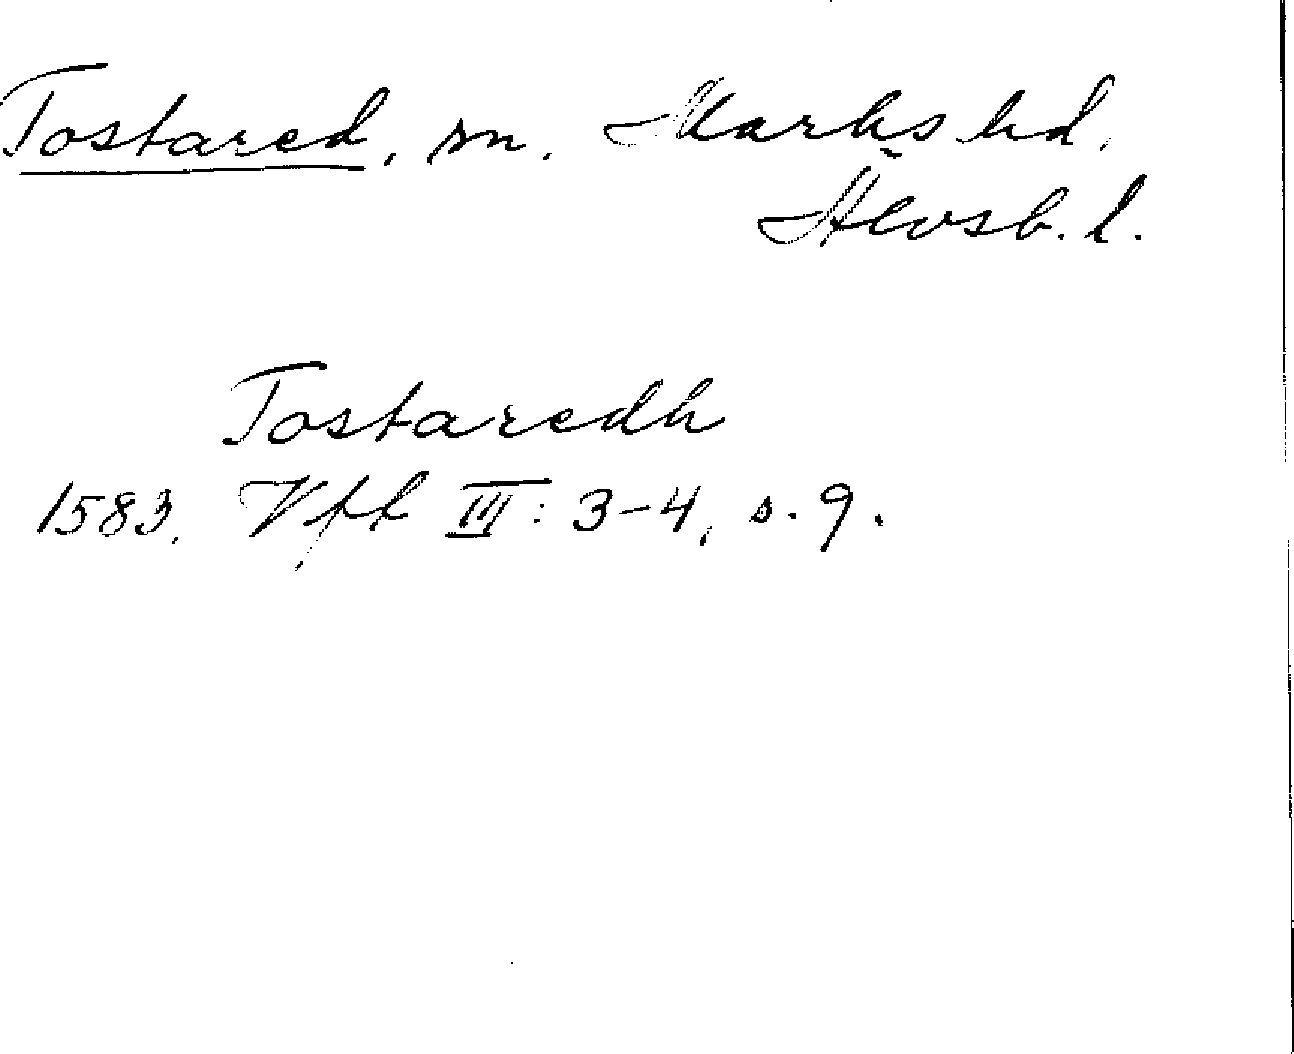 Tostared, sn. Marks hd,
Älvsb. l.
Tostaredh
1583, Vfl III: 3-4, s. 9.